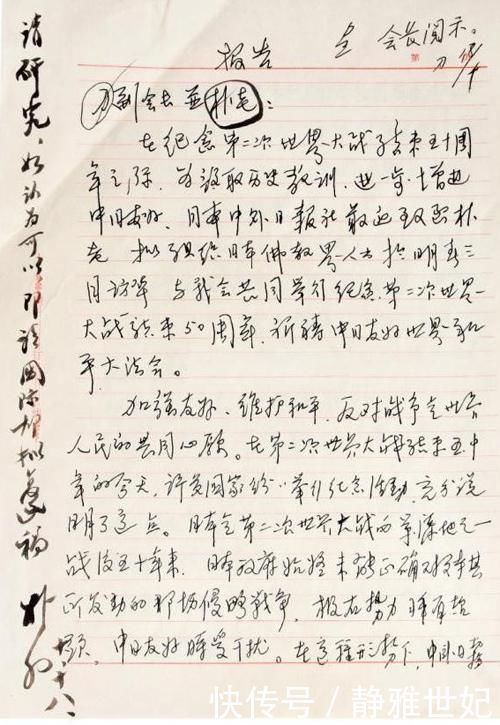 呈 会长阅示。
刀
报告
刀副会长并朴老：
在纪念第二次世界大战结束五十周
年之际，为汲取历史教训，进一步增进
中日友好，日本中外日报社最近致函朴
老，拟组织日本佛教界人士于明春三
月访华，与我会共同举行纪念第二次世界
大战结束50周年，祈祷中日友好世界和
平大法会。
加强友好、维护和平、反对战争是世界
人民的共同心愿。在第二次世界大战结束五十
年的今天，许多国家纷纷举行纪念活动，充分说
明了这点。日本是第二次世界大战的策源地之一，
战后五十年来，日本政府始终未能正确对待其
所发动的那场侵略战争，极右势力时有抬
头，中日友好时受干扰。在这种形势下，中外日报
请研究，如认为可以，即请国际部拟复稿
朴初
十八
快传号 / 静雅世妃